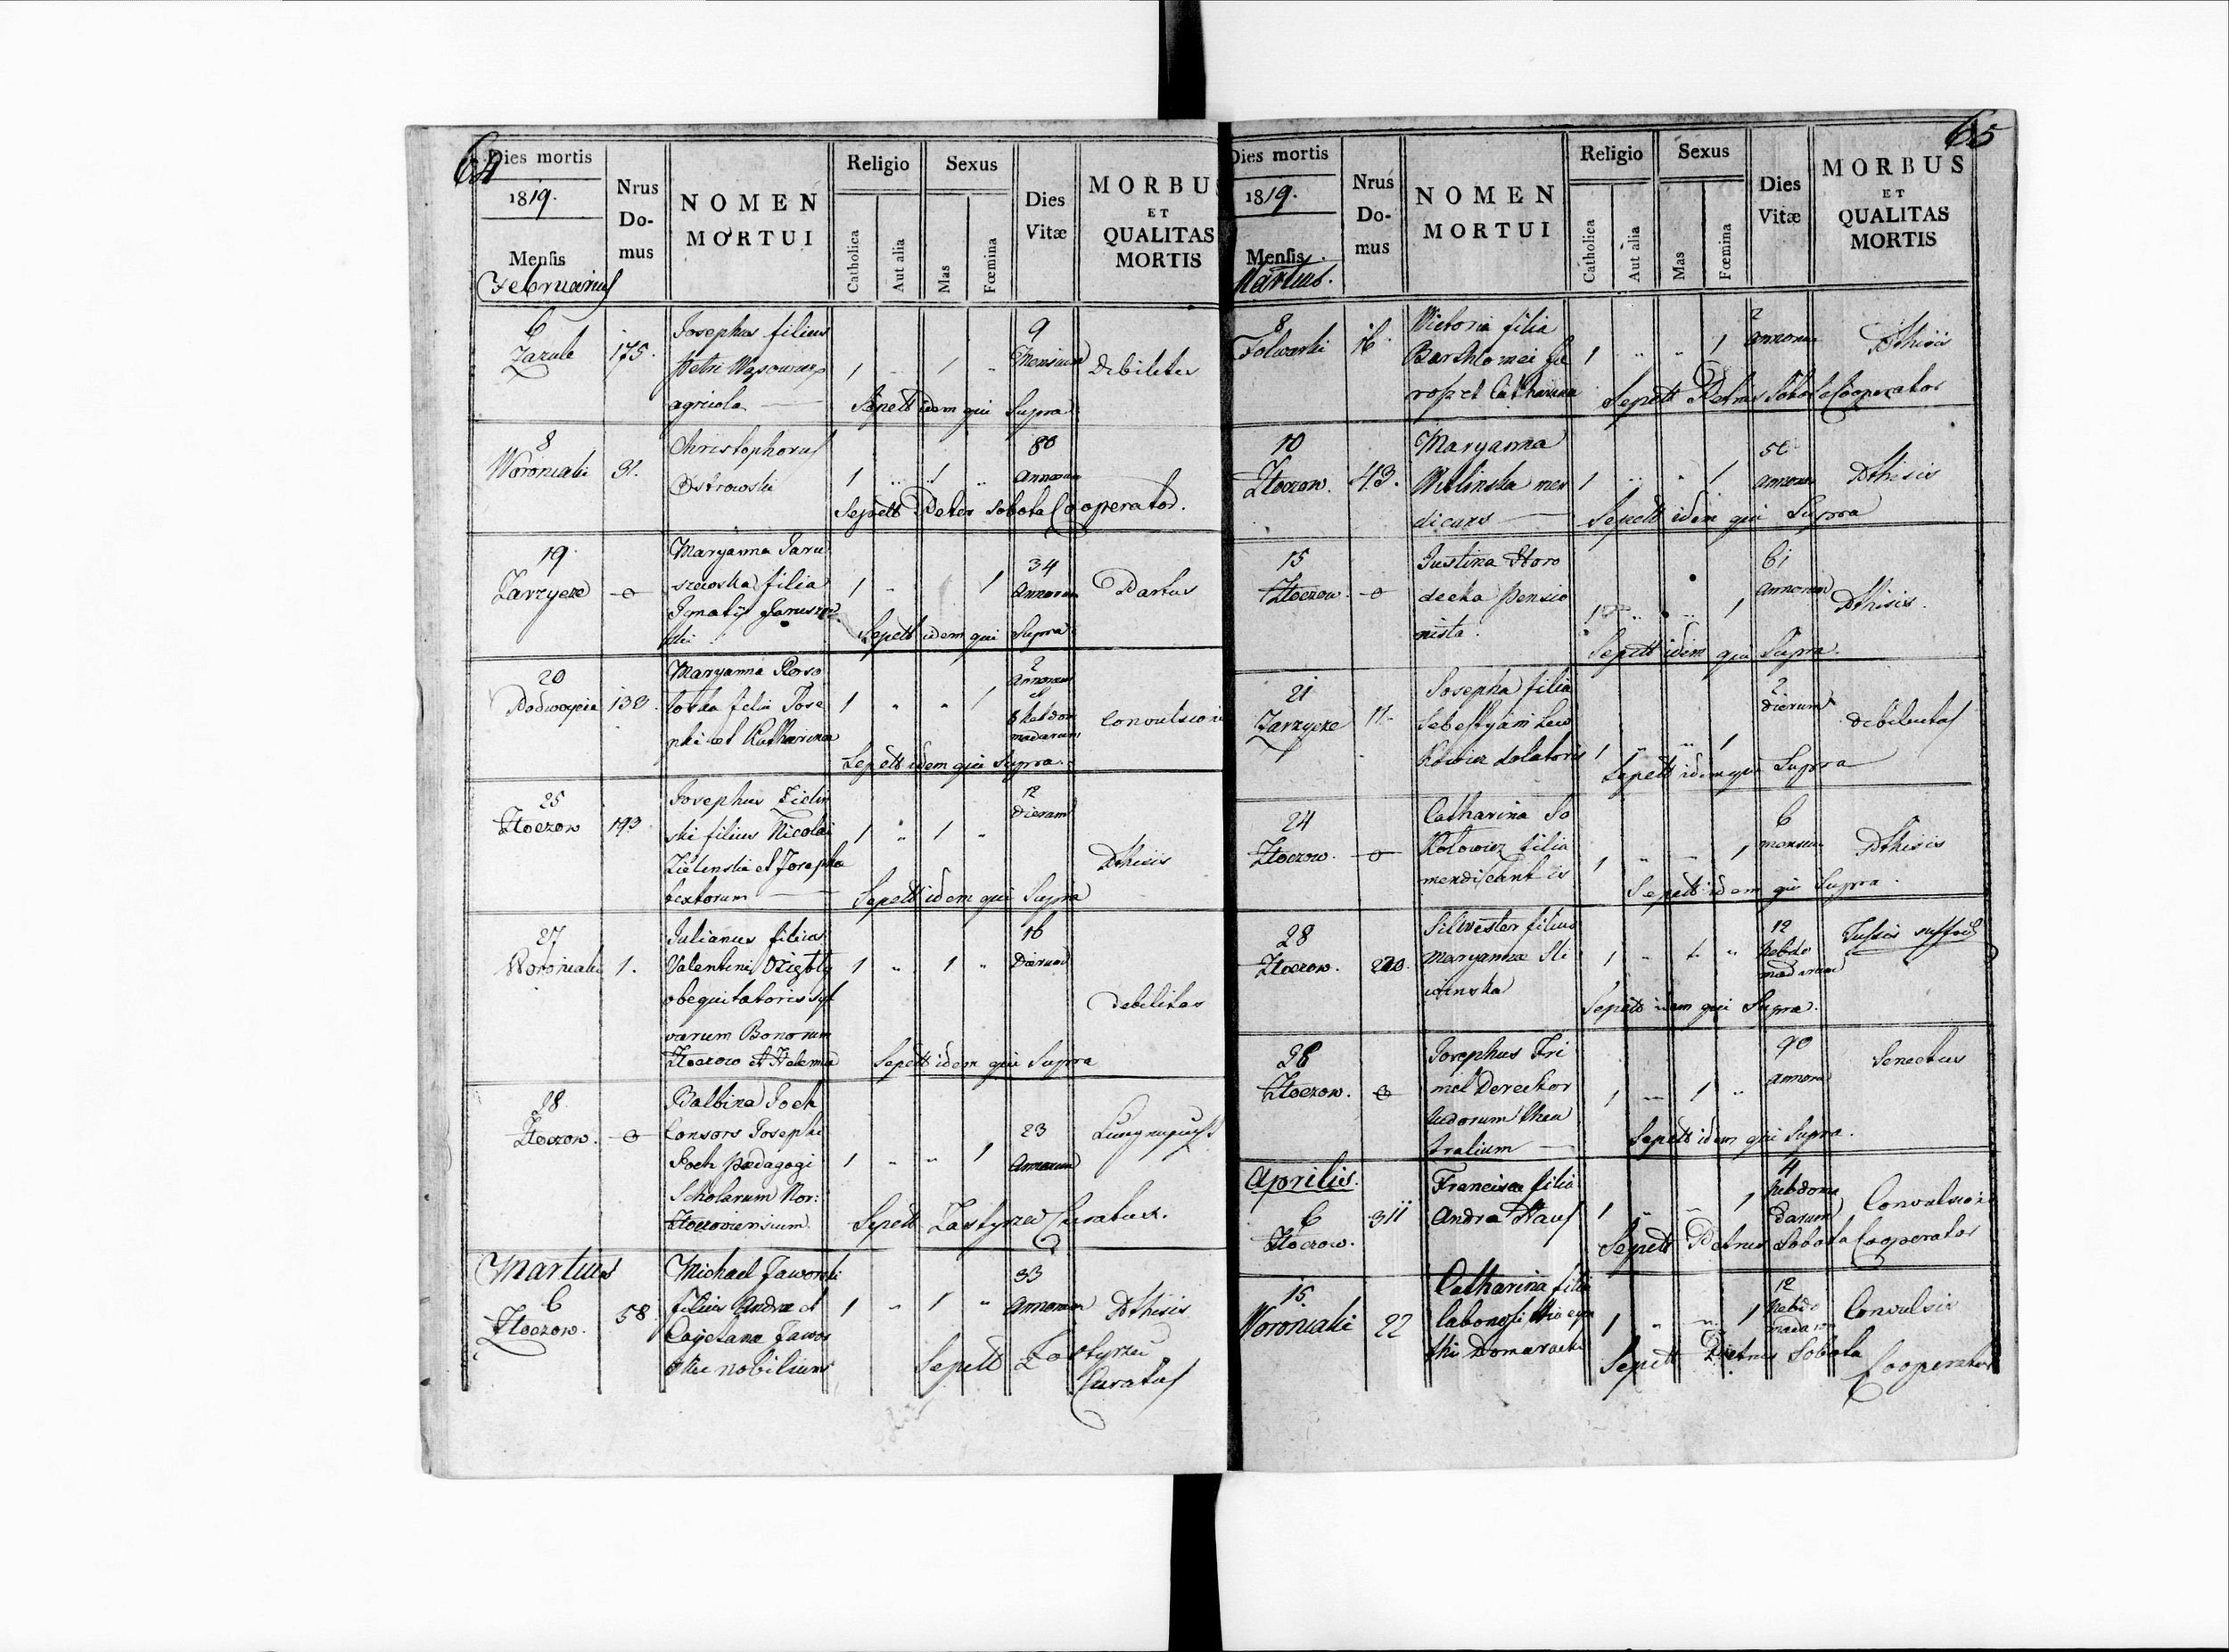 64
Dies mortis
1819.
Mensis
Februarius
Nrus
Do-
mus
NOMEN
MORTUI
Religio
Catholica
Aut alia
Sexus
Mas
Fœmina
Dies
Vitæ
MORBUS
ET
QUALITAS
MORTIS
6
Zazule
175.
Josephus filius
Petri
agricola
1 " 1 "
9
Mensium
Debilitas
Sepelt idem qui Supra
8
Woroniaki
31.
Christophorus
Ostrowski
1 " 1 "
80
Annorum
Sepelt Peter Sobota Cooperator.
19
Zarzycze
-o-
Maryanna Janu
szewska filia
Ignatij Januszew
ski
1 " 1
34
Annorum
Partus
Sepelt idem qui Supra
20
Podwoycie
138.
Maryanna Roso
loska filia Jose
phi et Catharina
1 " " 1
2
Annorum
et
8 hebdom
madarum
Convulsion
Sepelt idem qui Supra.
25
Złoczow
193
Josephus Zielin
ski filius Nicolai
Zielinskie et Josepha
textorum
1 " 1 "
12
Dierum
Pthisis
Sepelt idem qui Supra
27
Woroniaki
1.
Julianus filius
Valentini
obequitatoris syl
varum Bonorum
Złoczow et Helenna
1 " 1 "
16
Dierum
Debilitas
Sepelt idem qui Supra
28
Złoczow.
-o-
Balbina Poch
Consors Josephi
Poch pædagogi
Scholarum Nor:
Złoczoviensium.
1 " " 1
23
Annorum
Sepelt Zastyrzec Curatus.
Martius
6
Złoczow.
58
Michael Jaworski
filius Andræ et
Cajetana Jawor
skie nobilium
1 " 1 "
33
Annorum
Pthisis
Sepelt Zastyrzec
Curatus
65
Dies mortis
1819.
Mensis.
Martius.
Nrus
Do-
mus
NOMEN
MORTUI
Religio
Catholica
Aut alia
Sexus
Mas
Fœmina
Dies
Vitæ
MORBUS
ET
QUALITAS
MORTIS
8
Folwarki
16.
Victoria filia
Barthlomei
et Catharina
1 " " 1
2
Annorum
Pthisis
Sepelt Petrus Sobota Cooperator
10
Złoczow.
43.
Maryanna
Wilinska men
dicans
1 " " 1
50
Annorum
Pthisis
Sepelt idem qui Supra
15
Złoczow.
-o-
Justina Horo
decka pensio
nista.
1 " " 1
61
Annorum
Pthisis.
Sepelt idem qui Supra.
21
Zarzycze
11.
Josepha filia
Sebestyani Lew
kowicz dolatoris
1 " " 1
2
dierum
debilitas
Sepelt idem qui Supra
24
Złoczow.
-o-
Catharina So
kołowicz filia
mendicantis
1 " " 1
6
mensium
Pthisis
Sepelt idem qui Supra.
28
Złoczow.
Silwester filius
Maryanna Sli
winska
1 " 1 "
12
hebdo
madarum
Tussis suffoc
Sepelt idem qui Supra.
28
Złoczow.
-o-
Josephus Fri
mel Derektor
ludorum thea
tralium
1 " 1 "
90
Annorum
Senectus
Sepelt idem qui Supra.
Aprilis.
6
Złoczow.
311
Francisca filia
Andra Nauf
1 " " 1
4
hebdoma
darum
Convulsion
Sepelt Petrus Sobota Cooperator
15
Woroniaki
22
Catharina filia
Domaracki
1 " " 1
12
hebdo
madarum
Convulsio
Sepelt Petrus Sobota
Cooperator